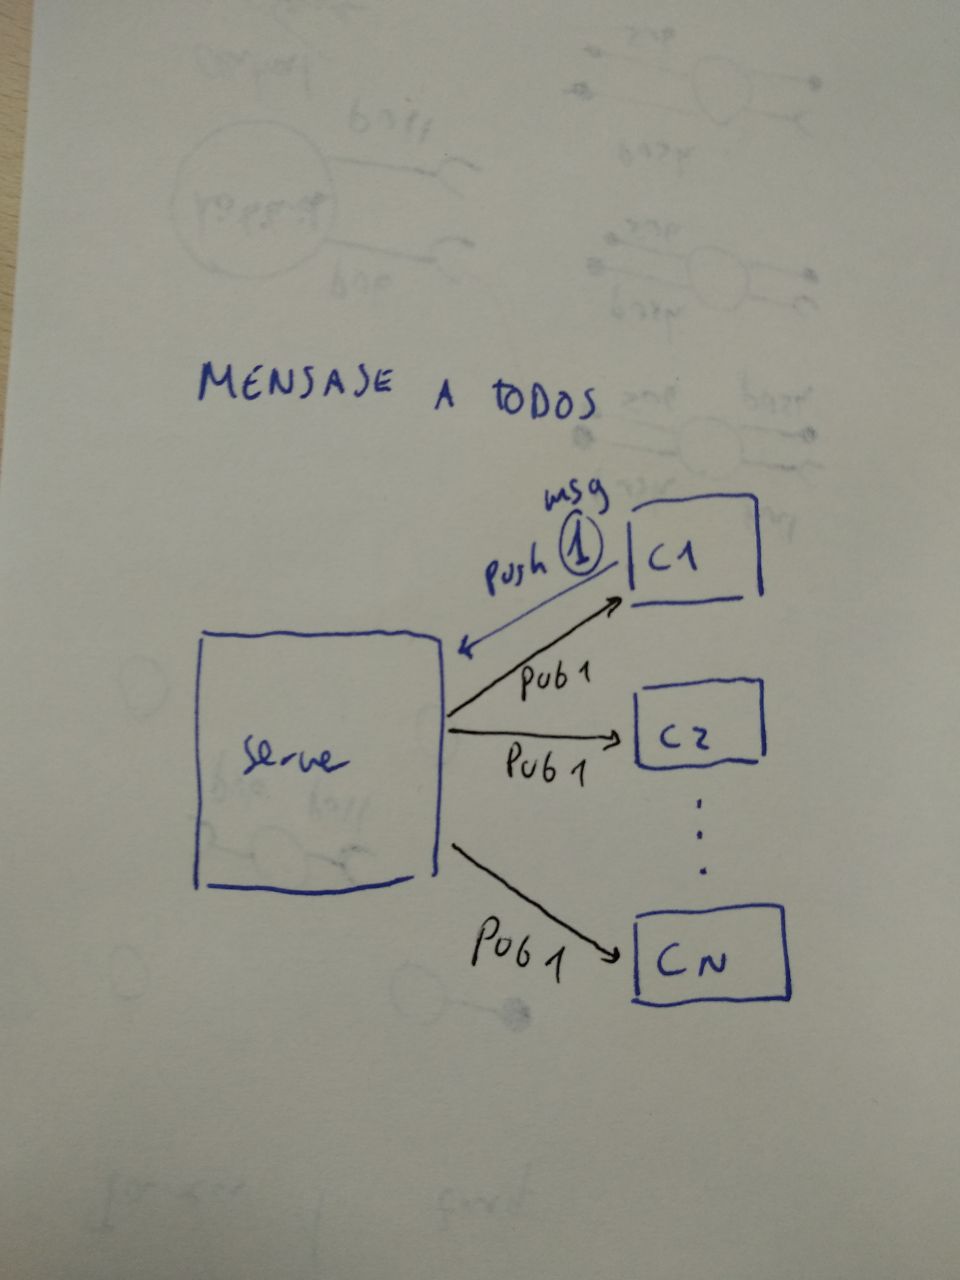 MENSAJE A TODOS
msg
push 1
C1
Pub 1
server
C2
Pub 1
CN
Pub 1